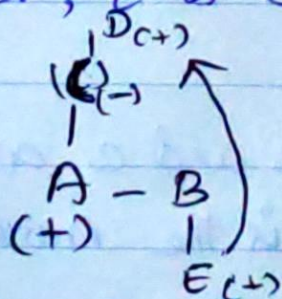 D(+)
(C)(-)
A - B
(+)
E(+)